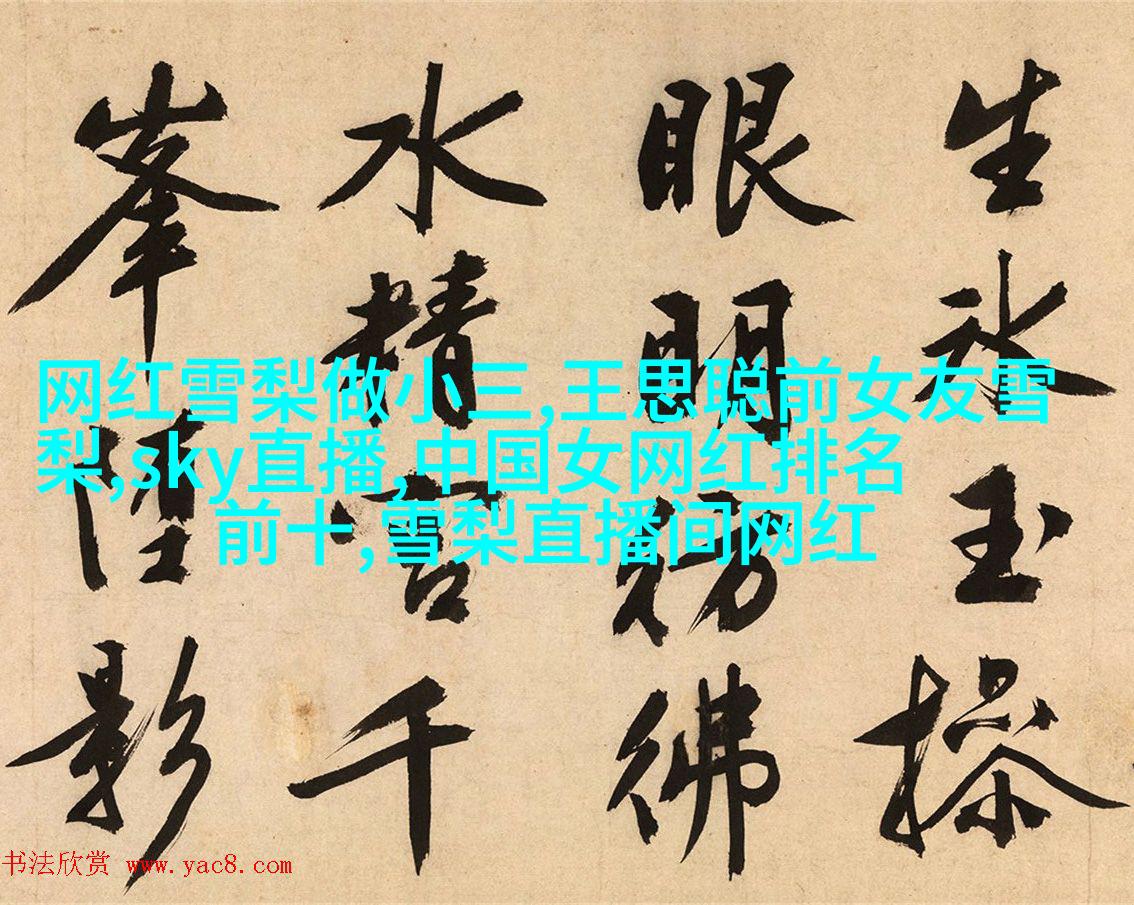 生冰玉操
眼明彷彿
水精宮千
峯墮影
网红雪梨做小三,王思聪前女友雪
梨,sky直播,中国女网红排名
前十,雪梨直播间网红
书法欣赏 www.yac8.com